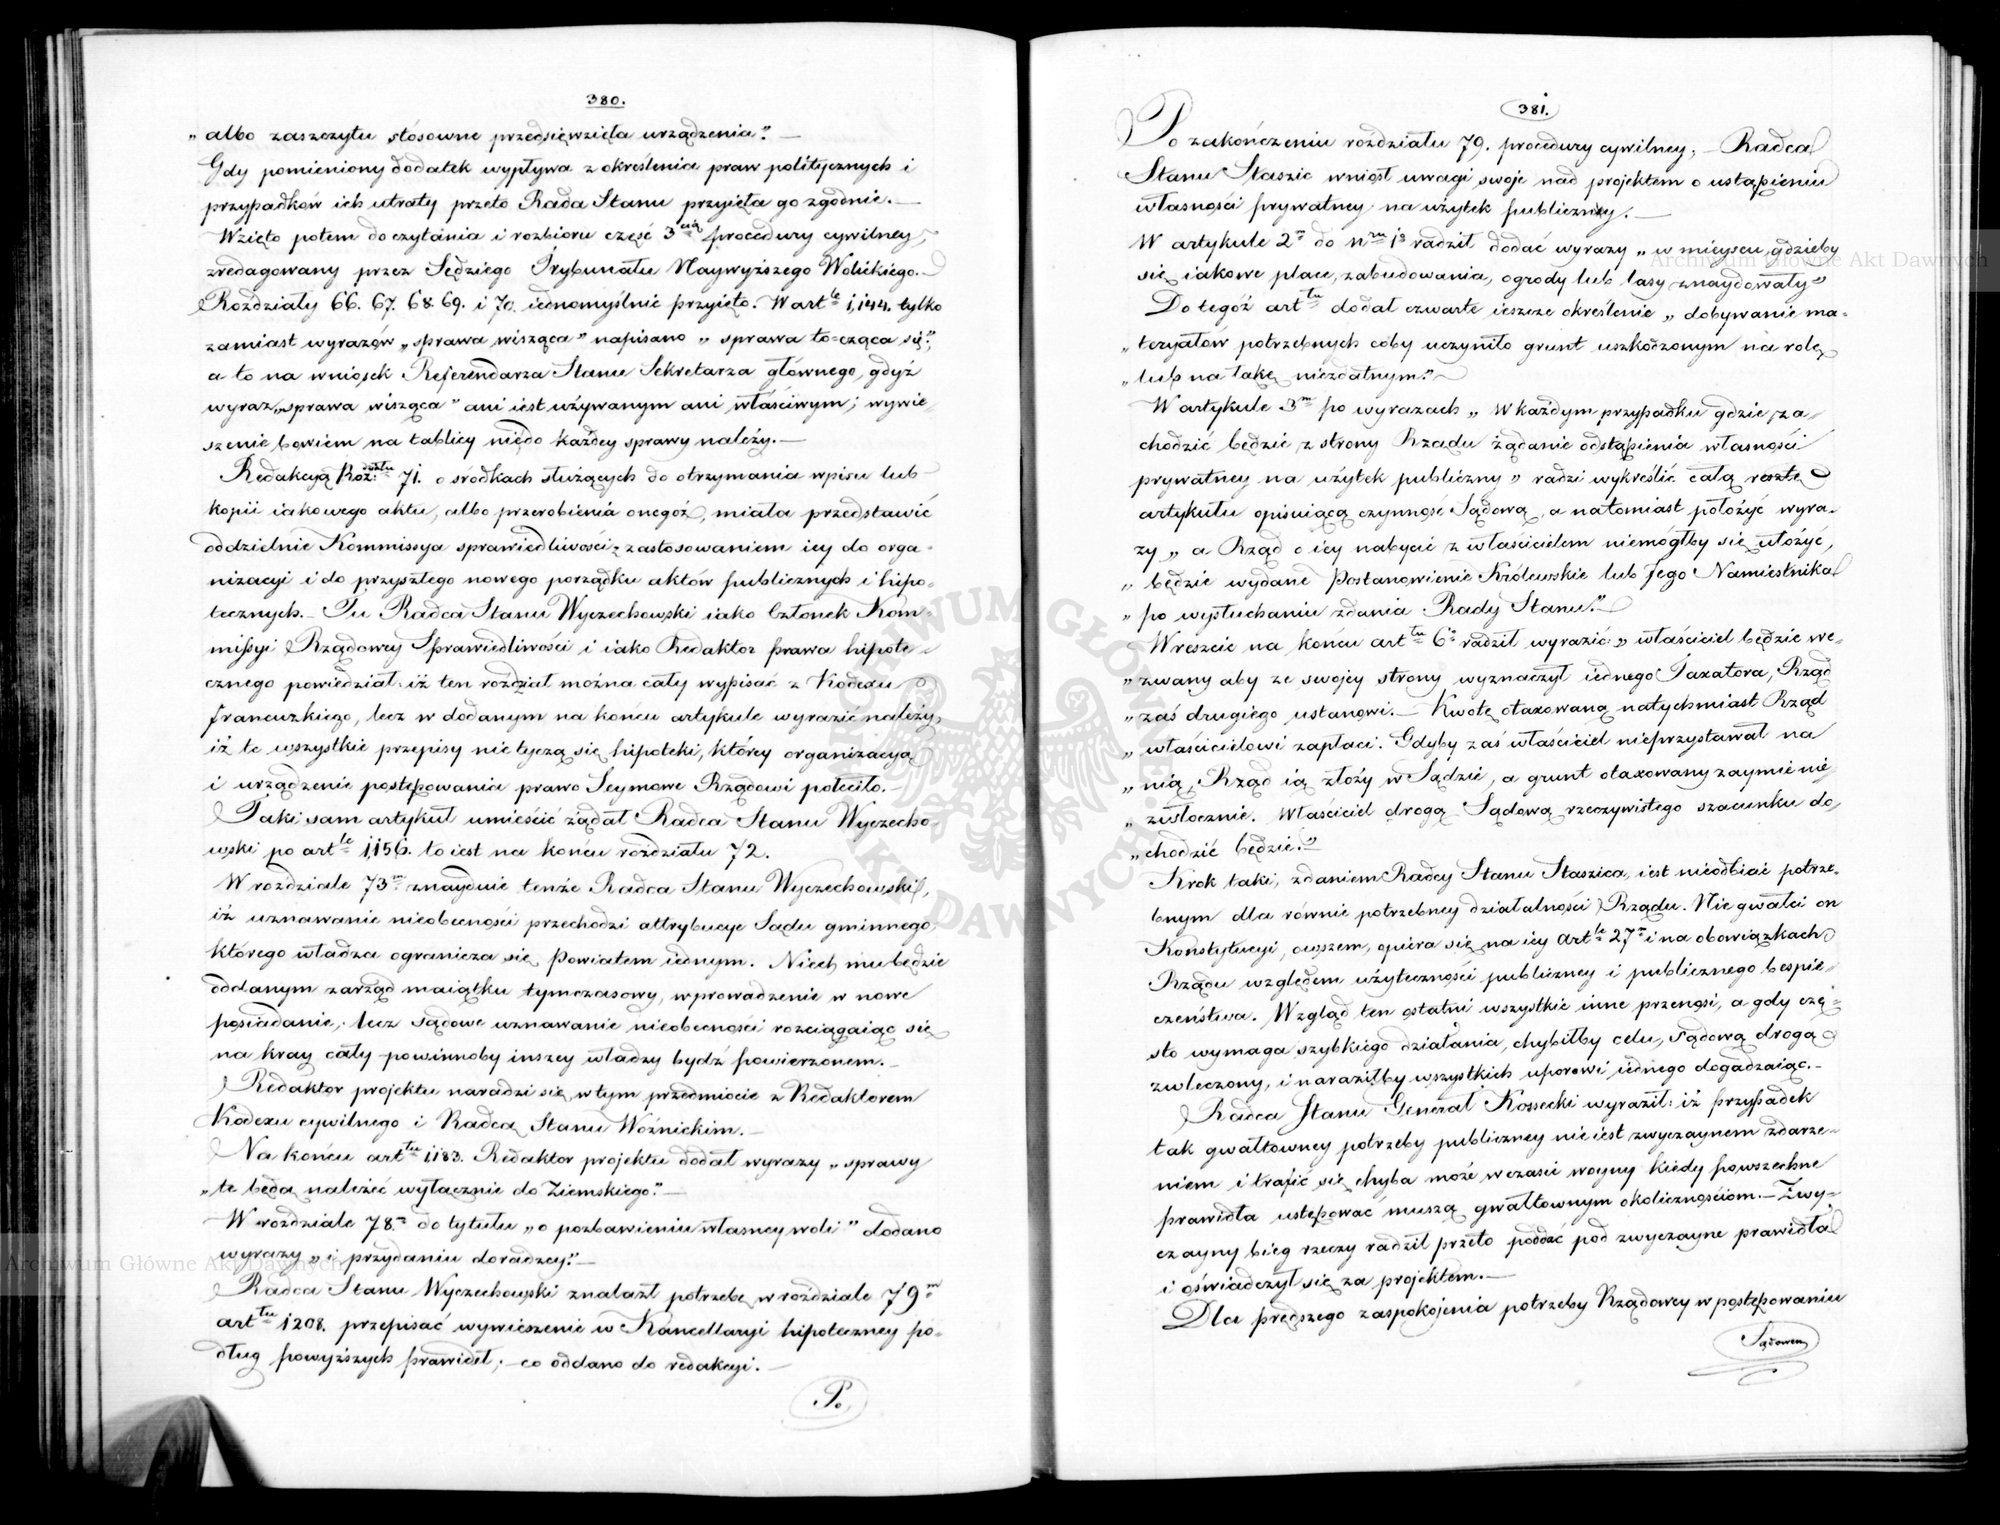 380.
„albo zaszczytu stósowne przedsięwzięła urządzenia.” —
Gdy pomieniony dodatek wypływa z określenia praw politycznych i
przypadków ich utraty przeto Rada Stanu przyięła go zgodnie. —
Wzięto potem do czytania i rozbioru część 3cią procedury cywilney,
zredagowany przez Sędziego Trybunału Naywyższego Wolickiego. —
Rozdziały 66. 67. 68. 69. i 70. iednomyślnie przyięto. W artle 1,144. tylko
zamiast wyrazów „sprawa wisząca” napisano „sprawa to=cząca się”,
a to na wniosek Referendarza Stanu Sekretarza głównego, gdyż
wyraz „sprawa wisząca” ani iest używanym ani właściwym; wywie-
szenie bowiem na tablicy nie do każdey sprawy należy. —
Redakcyą Rozdziału 71. o środkach służących do otrzymania wpisu lub
kopii iakowego aktu, albo przerobienia onegoż, miała przedstawić
oddzielnie Kommissya sprawiedliwości z zastosowaniem iey do orga-
nizacyi i do przyszłego nowego porządku aktów publicznych i hipo-
tecznych. — Tu Radca Stanu Wyczechowski iako Członek Kom-
missyi Rządowey Sprawiedliwości i iako Redaktor prawa hipote-
cznego powiedział: iż ten rozdział można cały wypisać z Kodexu
francuzkiego, lecz w dodanym na końcu artykule wyrazić należy,
iż te wszystkie przepisy nie tyczą się hipoteki, którey organizacyą
i urządzenie postępowania prawo Seymowe Rządowi poleciło. —
Taki sam artykuł umieścić żądał Radca Stanu Wyczecho-
wski po artle 1,156. to iest na końcu rozdziału 72.
W rozdziale 73m znayduie tenże Radca Stanu Wyczechowski,
iż uznawanie nieobecności przechodzi attrybucye Sądu gminnego,
którego władza ogranicza się Powiatem iednym. Niech mu będzie
oddanym zarząd maiątku tymczasowy, wprowadzenie w nowe
posiadanie, lecz sądowe uznawanie nieobecności rozciągaiąc się
na kray cały powinnoby inszey władzy bydź powierzonem. —
Redaktor projektu naradzi się w tym przedmiocie z Redaktorem
Kodexu cywilnego i Radcą Stanu Woźnickim. —
Na końcu arttu 1183. Redaktor projektu dodał wyrazy „sprawy
„te będą należeć wyłącznie do Ziemskiego.” —
W rozdziale 78m do tytułu „o pozbawieniu własney woli” dodano
wyrazy „i przydaniu doradzcy.” —
Radca Stanu Wyczechowski znalazł potrzebę w rozdziale 79m
arttu 1208. przepisać wywieszenie w Kancellaryi hipoteczney po-
dług powyższych prawideł; — co oddano do redakcyi. —
Po
381.
Po zakończeniu rozdziału 79. procedury cywilney, — Radca
Stanu Staszic wniósł uwagi swoje nad projektem o ustąpieniu
własności prywatney na użytek publiczny. —
W artykule 2m do nru 1o radził dodać wyrazy „w mieyscu, gdzieby
się iakowe place, zabudowania, ogrody lub lasy znaydowały”
Do tegoż arttu dodał czwarte ieszcze określenie „dobywanie ma-
„teryałów potrzebnych coby uczyniło grunt uszkodzonym na rolę
„lub na łąkę niezdatnym.” —
W artykule 3m po wyrazach „W każdym przypadku gdzie za-
chodzić będzie z strony Rządu żądanie odstąpienia własności
prywatney na użytek publiczny” radzi wykreślić całą resztę
artykułu opisuiącą czynność Sądową, a natomiast położyć wyra-
zy „a Rząd o iey nabycie z właścicielem niemógłby się ułożyć,
„będzie wydane Postanowienie Królewskie lub Jego Namiestnika
„po wysłuchaniu zdania Rady Stanu.” —
Wreszcie na końcu arttu 6o radził wyrazić: „właściciel będzie we-
„zwany aby ze swojey strony wyznaczył iednego Taxatora, Rząd
„zaś drugiego ustanowi. — Kwotę otaxowaną natychmiast Rząd
„właścicielowi zapłaci. Gdyby zaś właściciel nieprzystawał na
„nią, Rząd ią złoży w Sądzie, a grunt otaxowany zaymie nie-
„zwłocznie. Właściciel drogą Sądową rzeczywistego szacunku do-
„chodzić będzie.” —
Krok taki, zdaniem Radcy Stanu Staszica, iest nieodbicie potrze-
bnym dla równie potrzebney działalności Rządu. Nie gwałci on
Konstytucyi, owszem, opiera się na iey Artle 27m i na obowiązkach
Rządu względem użyteczności publiczney i publicznego bespie-
czeństwa. Wzgląd ten ostatni wszystkie inne przenosi, a gdy czę-
sto wymaga szybkiego działania, chybiłby celu, sądową drogą
zwleczony, i naraziłby wszystkich uporowi iednego dogadzaiąc. —
Radca Stanu Generał Kossecki wyraził: iż przypadek
tak gwałtowney potrzeby publiczney nie iest zwyczaynem zdarze-
niem i trafić się chyba może w czasie woyny kiedy powszechne
prawidła ustępować muszą gwałtownym okolicznościom. — Zwy-
czayny bieg rzeczy radził przeto poddać pod zwyczayne prawidła
i oświadczył się za projektem. —
Dla prędszego zaspokojenia potrzeby Rządowey w postępowaniu
Sądowem
ARCHIWUM GŁÓWNE AKT DAWNYCH
Archiwum Główne Akt Dawnych
Archiwum Główne Akt Dawnych